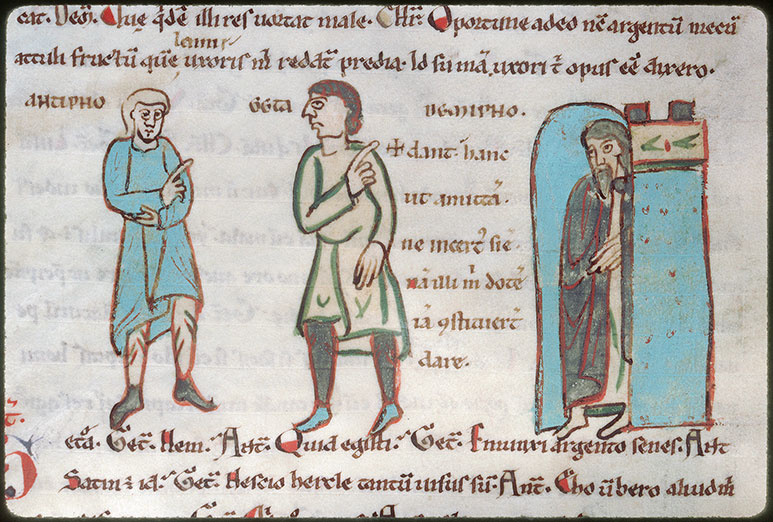 cat. Dem̄. Que q̄dē illi res uortat male. Chr̄. Oportune adeo nc̄ argentū mecū
lemni
attuli fructū quē uxoris m̄ reddt̄ predia. Id sumā, uxori t̄ opus eē dixero.
ANTIPHO GETA DEMIPHO.
dant hanc
ut amittā.
ne incert' siē
nā illi m̄ dotē
iā 9stituert̄
dare.
eta. Get̄. Hem. Ant̄. Quid egisti. Get̄. Emunxi argento senes. Ant̄
Satin ē id. Get̄. Nescio hercle tantū iussus sū. Ant̄. Eho ūbero aliud m̄